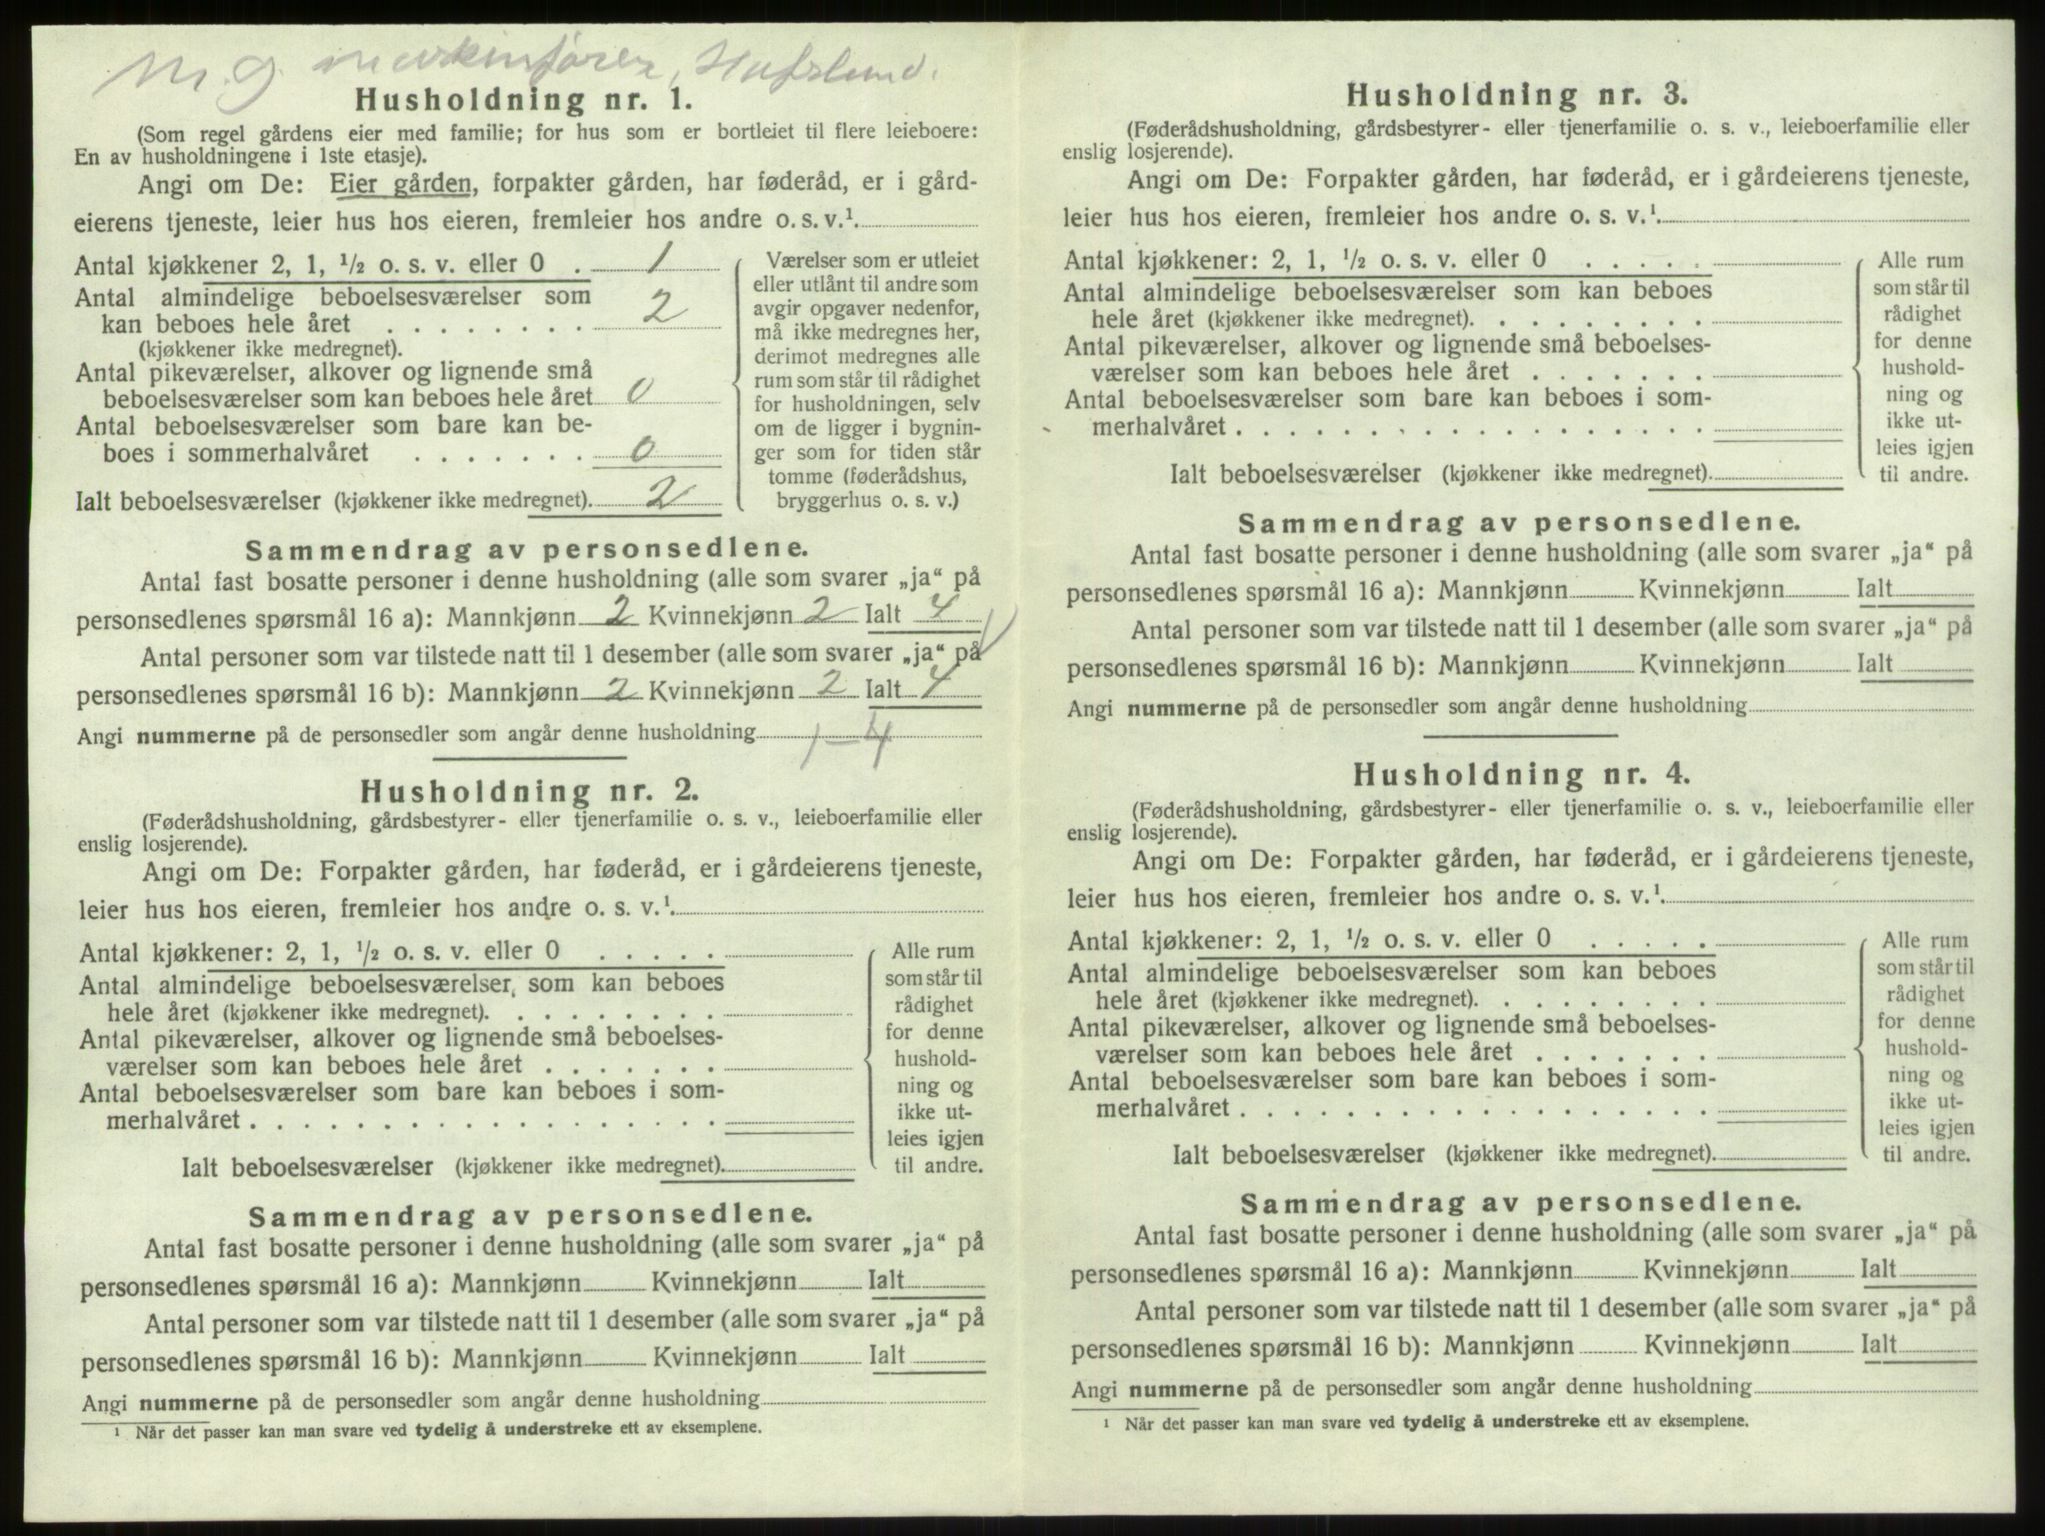 M. g. maskinfører, Hafslund.
Husholdning nr. 1.
(Som regel gårdens eier med familie; for hus som er bortleiet til flere leieboere:
En av husholdningene i 1ste etasje).
Angi om De: Eier gården, forpakter gården, har føderåd, er i gård-
eierens tjeneste, leier hus hos eieren, fremleier hos andre o. s. v.¹
Antal kjøkkener 2, 1, ½ o. s. v. eller 0 . 1
Antal almindelige beboelsesværelser som
kan beboes hele året . . . . . . . . 2
(kjøkkener ikke medregnet).
Antal pikeværelser, alkover og lignende små
beboelsesværelser som kan beboes hele året 0
Antal beboelsesværelser som bare kan be-
boes i sommerhalvåret . . . . . . . 0
Ialt beboelsesværelser (kjøkkener ikke medregnet). 2
Værelser som er utleiet
eller utlånt til andre som
avgir opgaver nedenfor,
må ikke medregnes her,
derimot medregnes alle
rum som står til rådighet
for husholdningen, selv
om de ligger i bygnin-
ger som for tiden står
tomme (føderådshus,
bryggerhus o. s. v.)
Sammendrag av personsedlene.
Antal fast bosatte personer i denne husholdning (alle som svarer „ja“ på
personsedlenes spørsmål 16 a): Mannkjønn 2 Kvinnekjønn 2 Ialt 4
Antal personer som var tilstede natt til 1 desember (alle som svarer „ja“ på
personsedlenes spørsmål 16 b): Mannkjønn 2 Kvinnekjønn 2 Ialt 4
Angi nummerne på de personsedler som angår denne husholdning 1-4
Husholdning nr. 2.
(Føderådshusholdning, gårdsbestyrer- eller tjenerfamilie o. s. v., leieboerfamilie eller
enslig losjerende).
Angi om De: Forpakter gården, har føderåd, er i gårdeierens tjeneste,
leier hus hos eieren, fremleier hos andre o. s. v.¹
Antal kjøkkener: 2, 1, ½ o. s. v. eller 0 . . . . .
Antal almindelige beboelsesværelser som kan beboes
hele året (kjøkkener ikke medregnet). . . . . . . . .
Antal pikeværelser, alkover og lignende små beboelses-
værelser som kan beboes hele året . . . . . . .
Antal beboelsesværelser som bare kan beboes i som-
merhalvåret . . . . . . . . . . . . . . . . . .
Ialt beboelsesværelser (kjøkkener ikke medregnet).
Alle rum
som står til
rådighet
for denne
hushold-
ning og
ikke ut-
leies igjen
til andre.
Sammendrag av personsedlene.
Antal fast bosatte personer i denne husholdning (alle som svarer „ja“ på
personsedlenes spørsmål 16 a): Mannkjønn Kvinnekjønn Ialt
Antal personer som var tilstede natt til 1 desember (alle som svarer „ja“ på
personsedlenes spørsmål 16 b): Mannkjønn Kvinnekjønn Ialt
Angi nummerne på de personsedler som angår denne husholdning
¹ Når det passer kan man svare ved tydelig å understreke ett av eksemplene.
Husholdning nr. 3.
(Føderådshusholdning, gårdsbestyrer- eller tjenerfamilie o. s. v., leieboerfamilie eller
enslig losjerende).
Angi om De: Forpakter gården, har føderåd, er i gårdeierens tjeneste,
leier hus hos eieren, fremleier hos andre o. s. v.¹
Antal kjøkkener: 2, 1, ½ o. s. v. eller 0 . . . . .
Antal almindelige beboelsesværelser som kan beboes
hele året (kjøkkener ikke medregnet). . . . . . . . .
Antal pikeværelser, alkover og lignende små beboelses-
værelser som kan beboes hele året . . . . . . .
Antal beboelsesværelser som bare kan beboes i som-
merhalvåret . . . . . . . . . . . . . . . . . .
Ialt beboelsesværelser (kjøkkener ikke medregnet).
Alle rum
som står til
rådighet
for denne
hushold-
ning og
ikke ut-
leies igjen
til andre.
Sammendrag av personsedlene.
Antal fast bosatte personer i denne husholdning (alle som svarer „ja“ på
personsedlenes spørsmål 16 a): Mannkjønn Kvinnekjønn Ialt
Antal personer som var tilstede natt til 1 desember (alle som svarer „ja“ på
personsedlenes spørsmål 16 b): Mannkjønn Kvinnekjønn Ialt
Angi nummerne på de personsedler som angår denne husholdning
Husholdning nr. 4.
(Føderådshusholdning, gårdsbestyrer- eller tjenerfamilie o. s. v., leieboerfamilie eller
enslig losjerende).
Angi om De: Forpakter gården, har føderåd, er i gårdeierens tjeneste,
leier hus hos eieren, fremleier hos andre o. s. v.¹
Antal kjøkkener: 2, 1, ½ o. s. v. eller 0 . . . . .
Antal almindelige beboelsesværelser som kan beboes
hele året (kjøkkener ikke medregnet). . . . . . . . .
Antal pikeværelser, alkover og lignende små beboelses-
værelser som kan beboes hele året . . . . . . .
Antal beboelsesværelser som bare kan beboes i som-
merhalvåret . . . . . . . . . . . . . . . . . .
Ialt beboelsesværelser (kjøkkener ikke medregnet).
Alle rum
som står til
rådighet
for denne
hushold-
ning og
ikke ut-
leies igjen
til andre.
Sammendrag av personsedlene.
Antal fast bosatte personer i denne husholdning (alle som svarer „ja“ på
personsedlenes spørsmål 16 a): Mannkjønn Kvinnekjønn Ialt
Antal personer som var tilstede natt til 1 desember (alle som svarer „ja“ på
personsedlenes spørsmål 16 b): Mannkjønn Kvinnekjønn Ialt
Angi nummerne på de personsedler som angår denne husholdning
¹ Når det passer kan man svare ved tydelig å understreke ett av eksemplene.